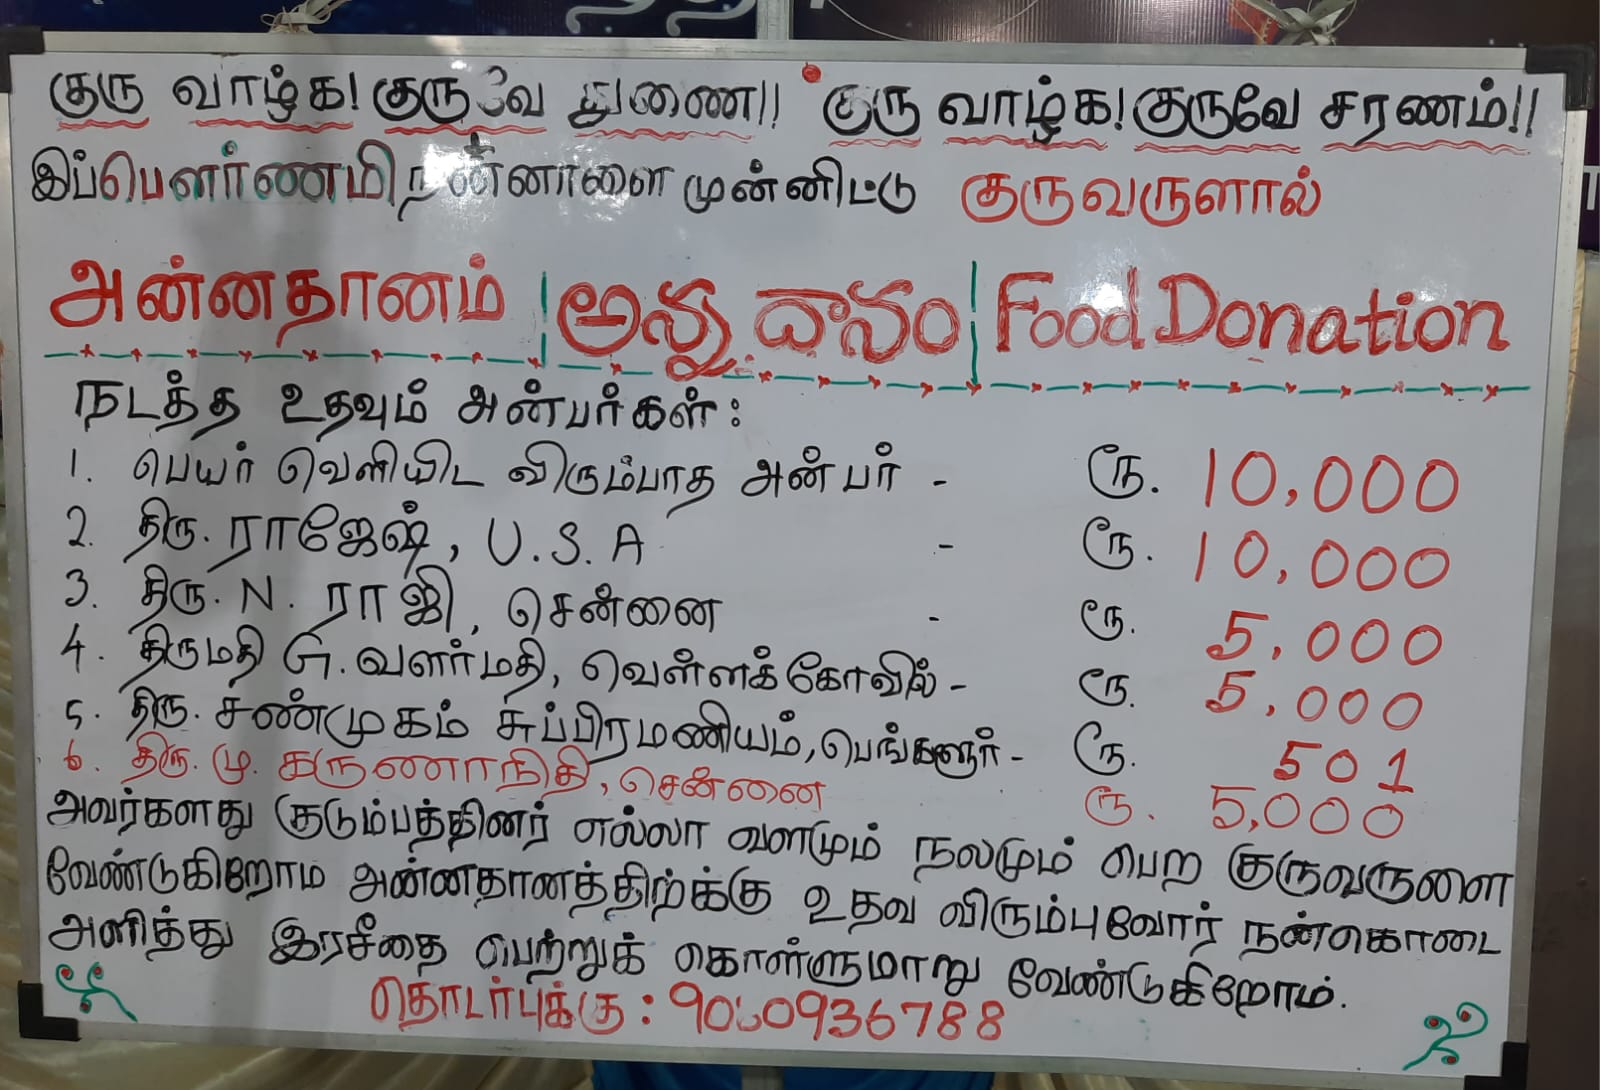 குரு வாழ்க! குருவே துணை!! குரு வாழ்க! குருவே சரணம்!!
இப்பௌர்ணமி நன்னாளை முன்னிட்டு குருவருளால்
அன்னதானம் | అన్న దానం | Food Donation
நடத்த உதவும் அன்பர்கள் :
1. பெயர் வெளியிட விரும்பாத அன்பர் - ரூ. 10,000
2. திரு. ராஜேஷ், U.S.A - ரூ. 10,000
3. திரு. N. ராஜி, சென்னை - ரூ. 5,000
4. திருமதி G. வளர்மதி, வெள்ளக்கோவில் - ரூ. 5,000
5. திரு. சண்முகம் சுப்பிரமணியம், பெங்களூர் - ரூ. 501
6. திரு. மு. கருணாநிதி, சென்னை ரூ. 5,000
அவர்களது குடும்பத்தினர் எல்லா வளமும் நலமும் பெற குருவருளை
வேண்டுகிறோம் அன்னதானத்திற்க்கு உதவ விரும்புவோர் நன்கொடை
அளித்து இரசீதை பெற்றுக் கொள்ளுமாறு வேண்டுகிறோம்.
தொடர்புக்கு :